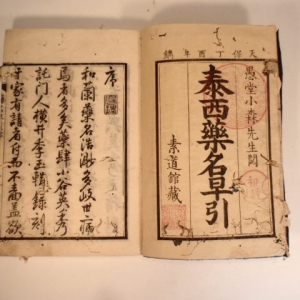 天保丁酉年鐫
愚堂小森先生閲
泰西藥名早引
素道館藏
序
和蘭藥名浩渺多岐世病
焉者多矣藥肆小谷英秀
託門人横井季玉輯録刻
于家有請者付而不盖欲